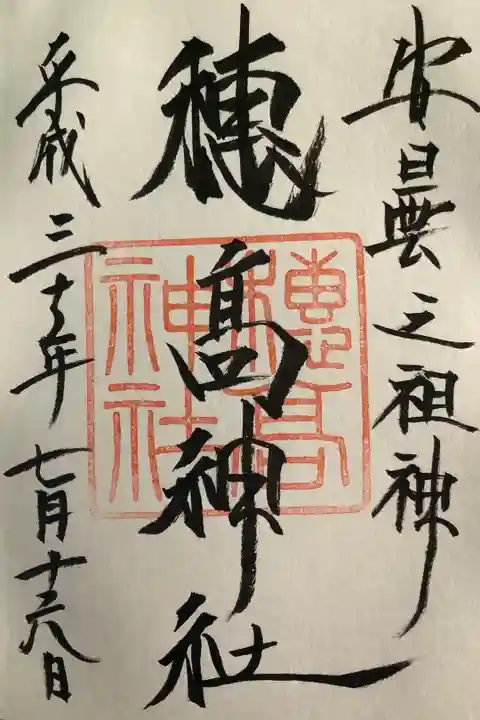 安曇之祖神
穂髙神社
平成三十年七月十六日
穂高神社